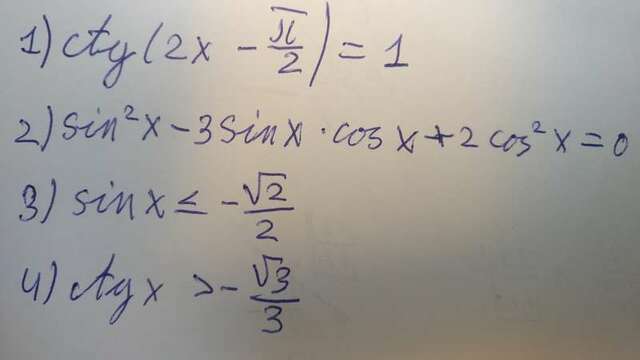 1) ctg(2x - π/2) = 1
2) sin²x - 3 sinx · cosx + 2 cos²x = 0
3) sinx ≤ - √2/2
4) ctgx > - √3/3